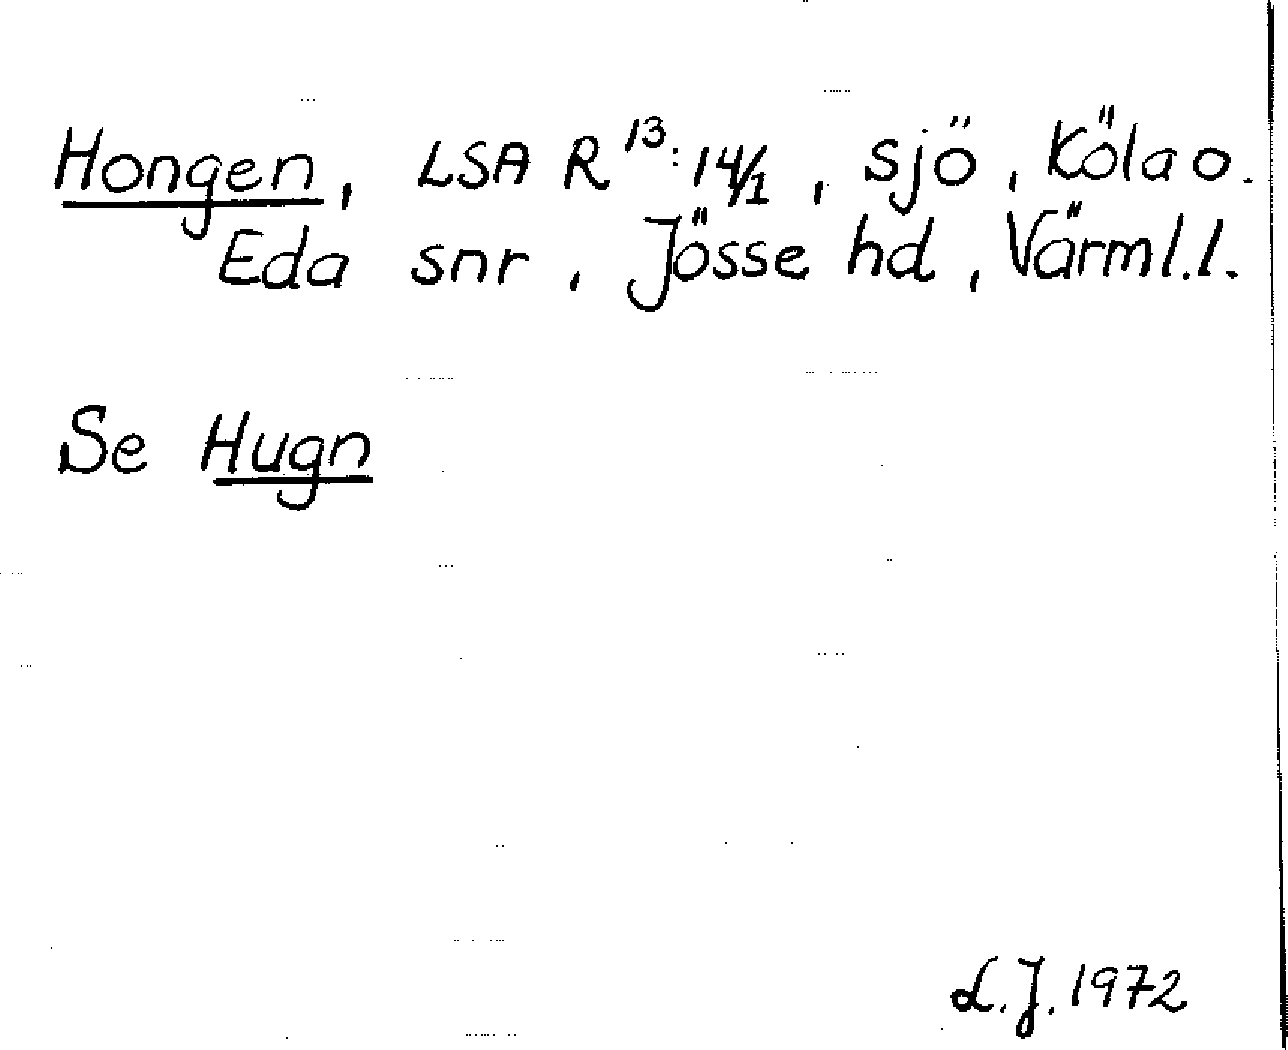 Hongen, LSA R¹³:14/1, sjö, Köla o.
Eda snr, Jösse hd, Värml.l.
Se Hugn
L.J. 1972